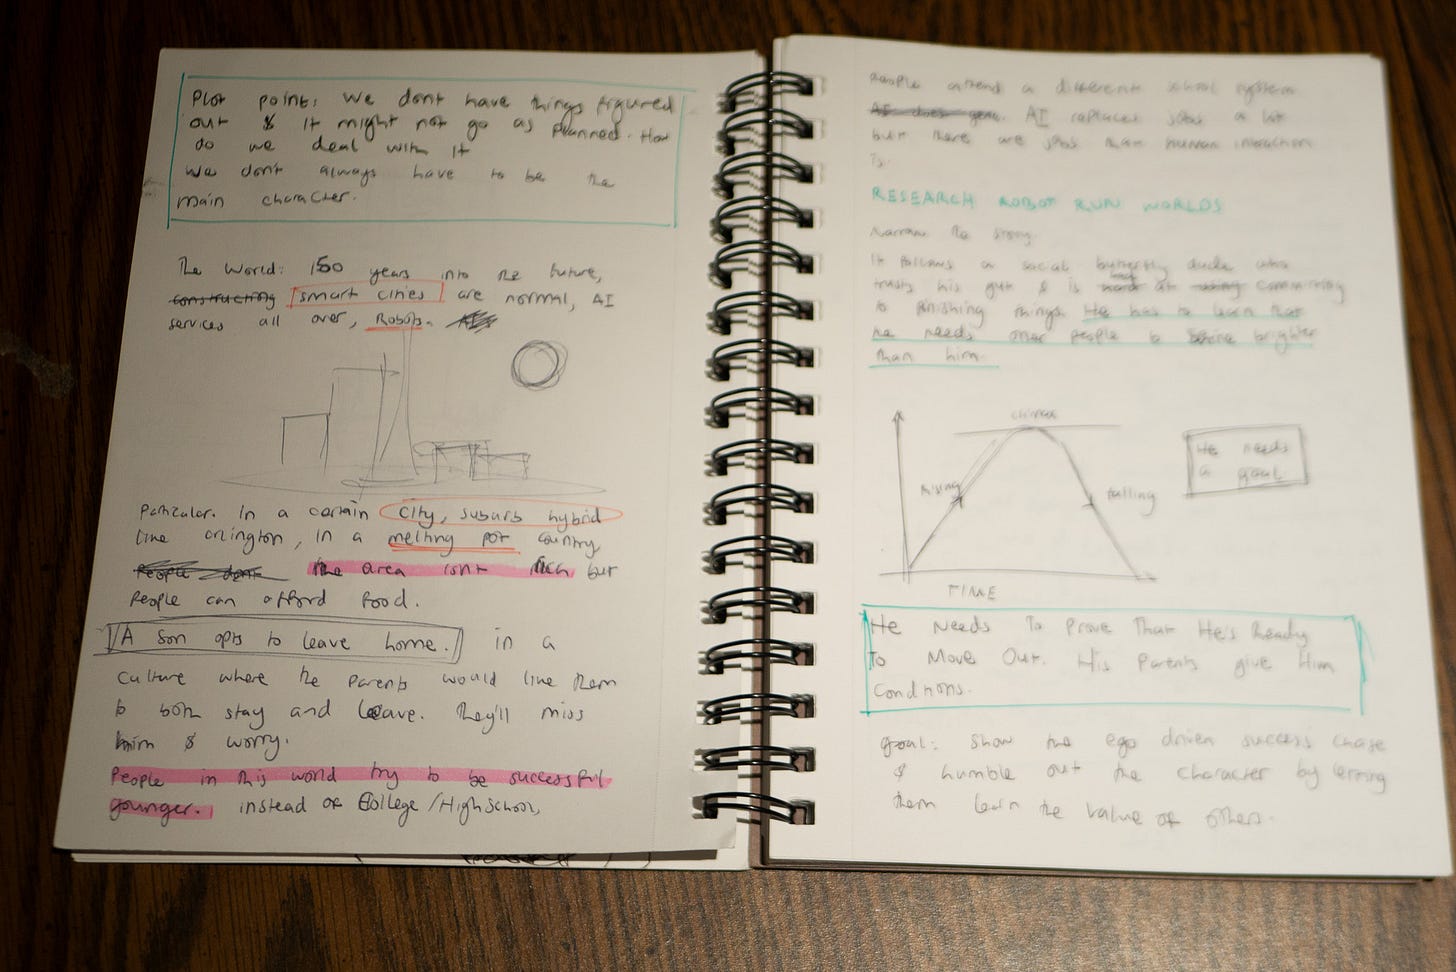 Plot point: We dont have things figured
out & It might not go as planned. How
do we deal with it
We don't always have to be the
main character.
The World: 150 years into the future,
constructing smart cities are normal, AI
services all over, Robots.
Particular. In a certain city, suburb hybrid
like arlington, in a melting pot country
People dont the area isnt rich but
People can afford food.
A son opts to leave home. in a
culture where the parents would like them
to both stay and leave. They'll miss
him & worry.
People in this world try to be successful
younger. instead of College/High School,
People attend a different school system
AI does gene. AI replaces jobs a lot
but there are jobs than human interaction
is.
RESEARCH ROBOT RUN WORLDS
Narrow the story.
It follows a social butterfly dude who
trusts his gut & is hard bad at committing
to finishing things. He has to learn that
he needs other people to shine brighter
than him.
climax
Rising
falling
TIME
He needs
a goal
He Needs To Prove That He's Ready
To Move Out. His Parents give Him
Conditions.
goal: Show the ego driven success chase
& humble out the character by letting
them learn the value of others.